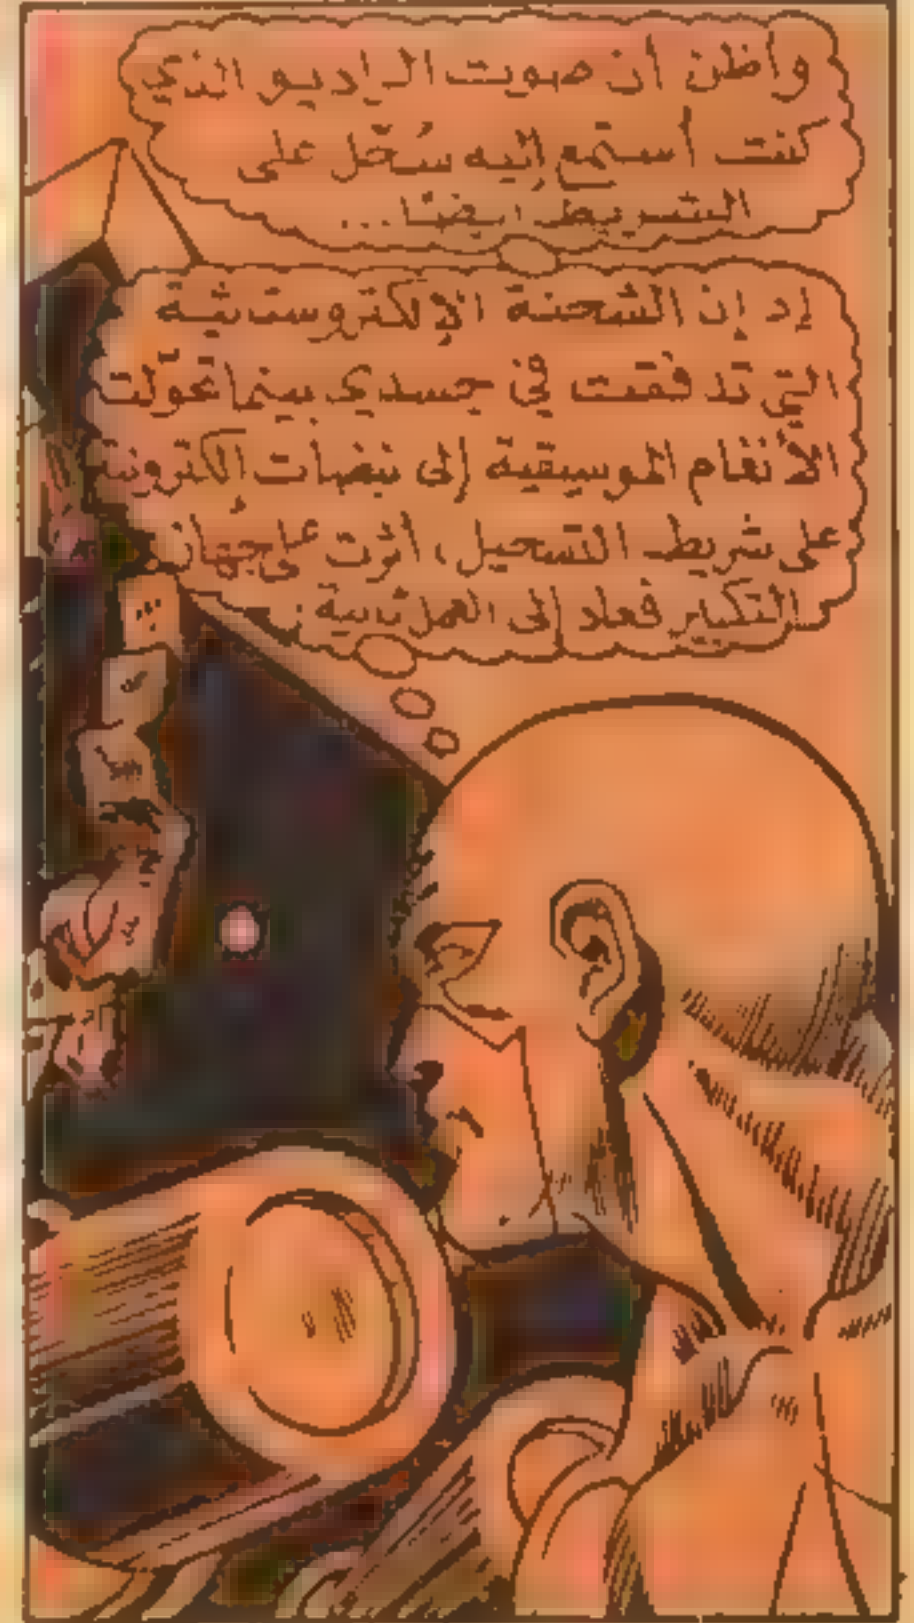 وأظن أن صوت الراديو الذي
كنت أستمع إليه سُجّل على
الشريط ايضًا...
إذ إن الشحنة الإلكتروستاتية
التي تدفقت في جسدي بينما تحوّلت
الأنغام الموسيقية إلى نبضات إلكترونية
على شريط التسجيل، أثرت على جهاز
التكبير فعاد إلى العمل ثانية.